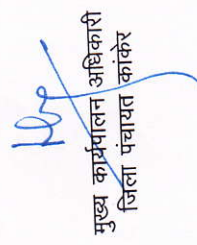 मुख्य कार्यपालन अधिकारी
जिला पंचायत कांकेर